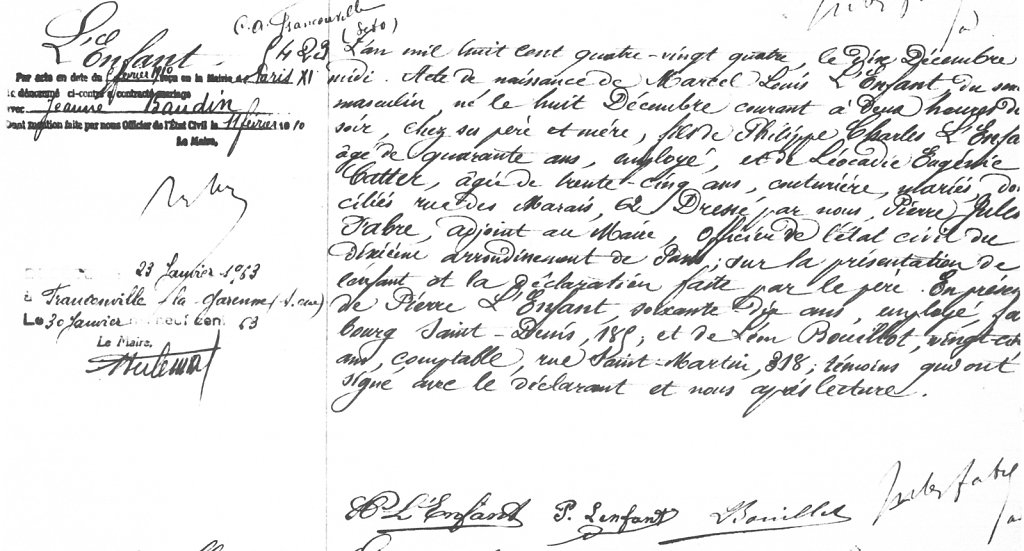 L'Enfant
5423
Par acte en date du février reçu en la Mairie de Paris XI
le dénommé ci-contre a contracté mariage
avec Jeanne Baudin
Dont mention faite par nous Officier de l'État Civil le 11 février 1910
Le Maire,
23 Janvier 1963
à Franconville la Garenne
Le 30 Janvier neuf cent 63
Le Maire,
C.A. Franconville
L'an mil huit cent quatre-vingt quatre, le dix Décembre
midi. Acte de naissance de Marcel Louis L'Enfant du sexe
masculin, né le huit Décembre courant à Deux heures du
soir, chez ses père et mère, fils de Philippe Charles L'Enfa
âgé de quarante ans, employé, et de Léocadie Eugénie
Catter, âgée de trente-cinq ans, couturière, mariés, domi
ciliés rue des Marais, 62. Dressé par nous, Pierre Jules
Fabre, adjoint au Maire, officier de l'état civil du
dixième arrondissement de Paris; sur la présentation de
l'enfant et la déclaration faite par le père. En présen
de Pierre L'Enfant, soixante dix ans, employé, fau
bourg Saint-Denis, 185; et de Léon Bouillot, vingt-cinq
ans, comptable, rue Saint-Martin, 318; témoins qui ont
signé avec le déclarant et nous après lecture.
L'Enfant P. Lenfant Bouillot Jules Fabre